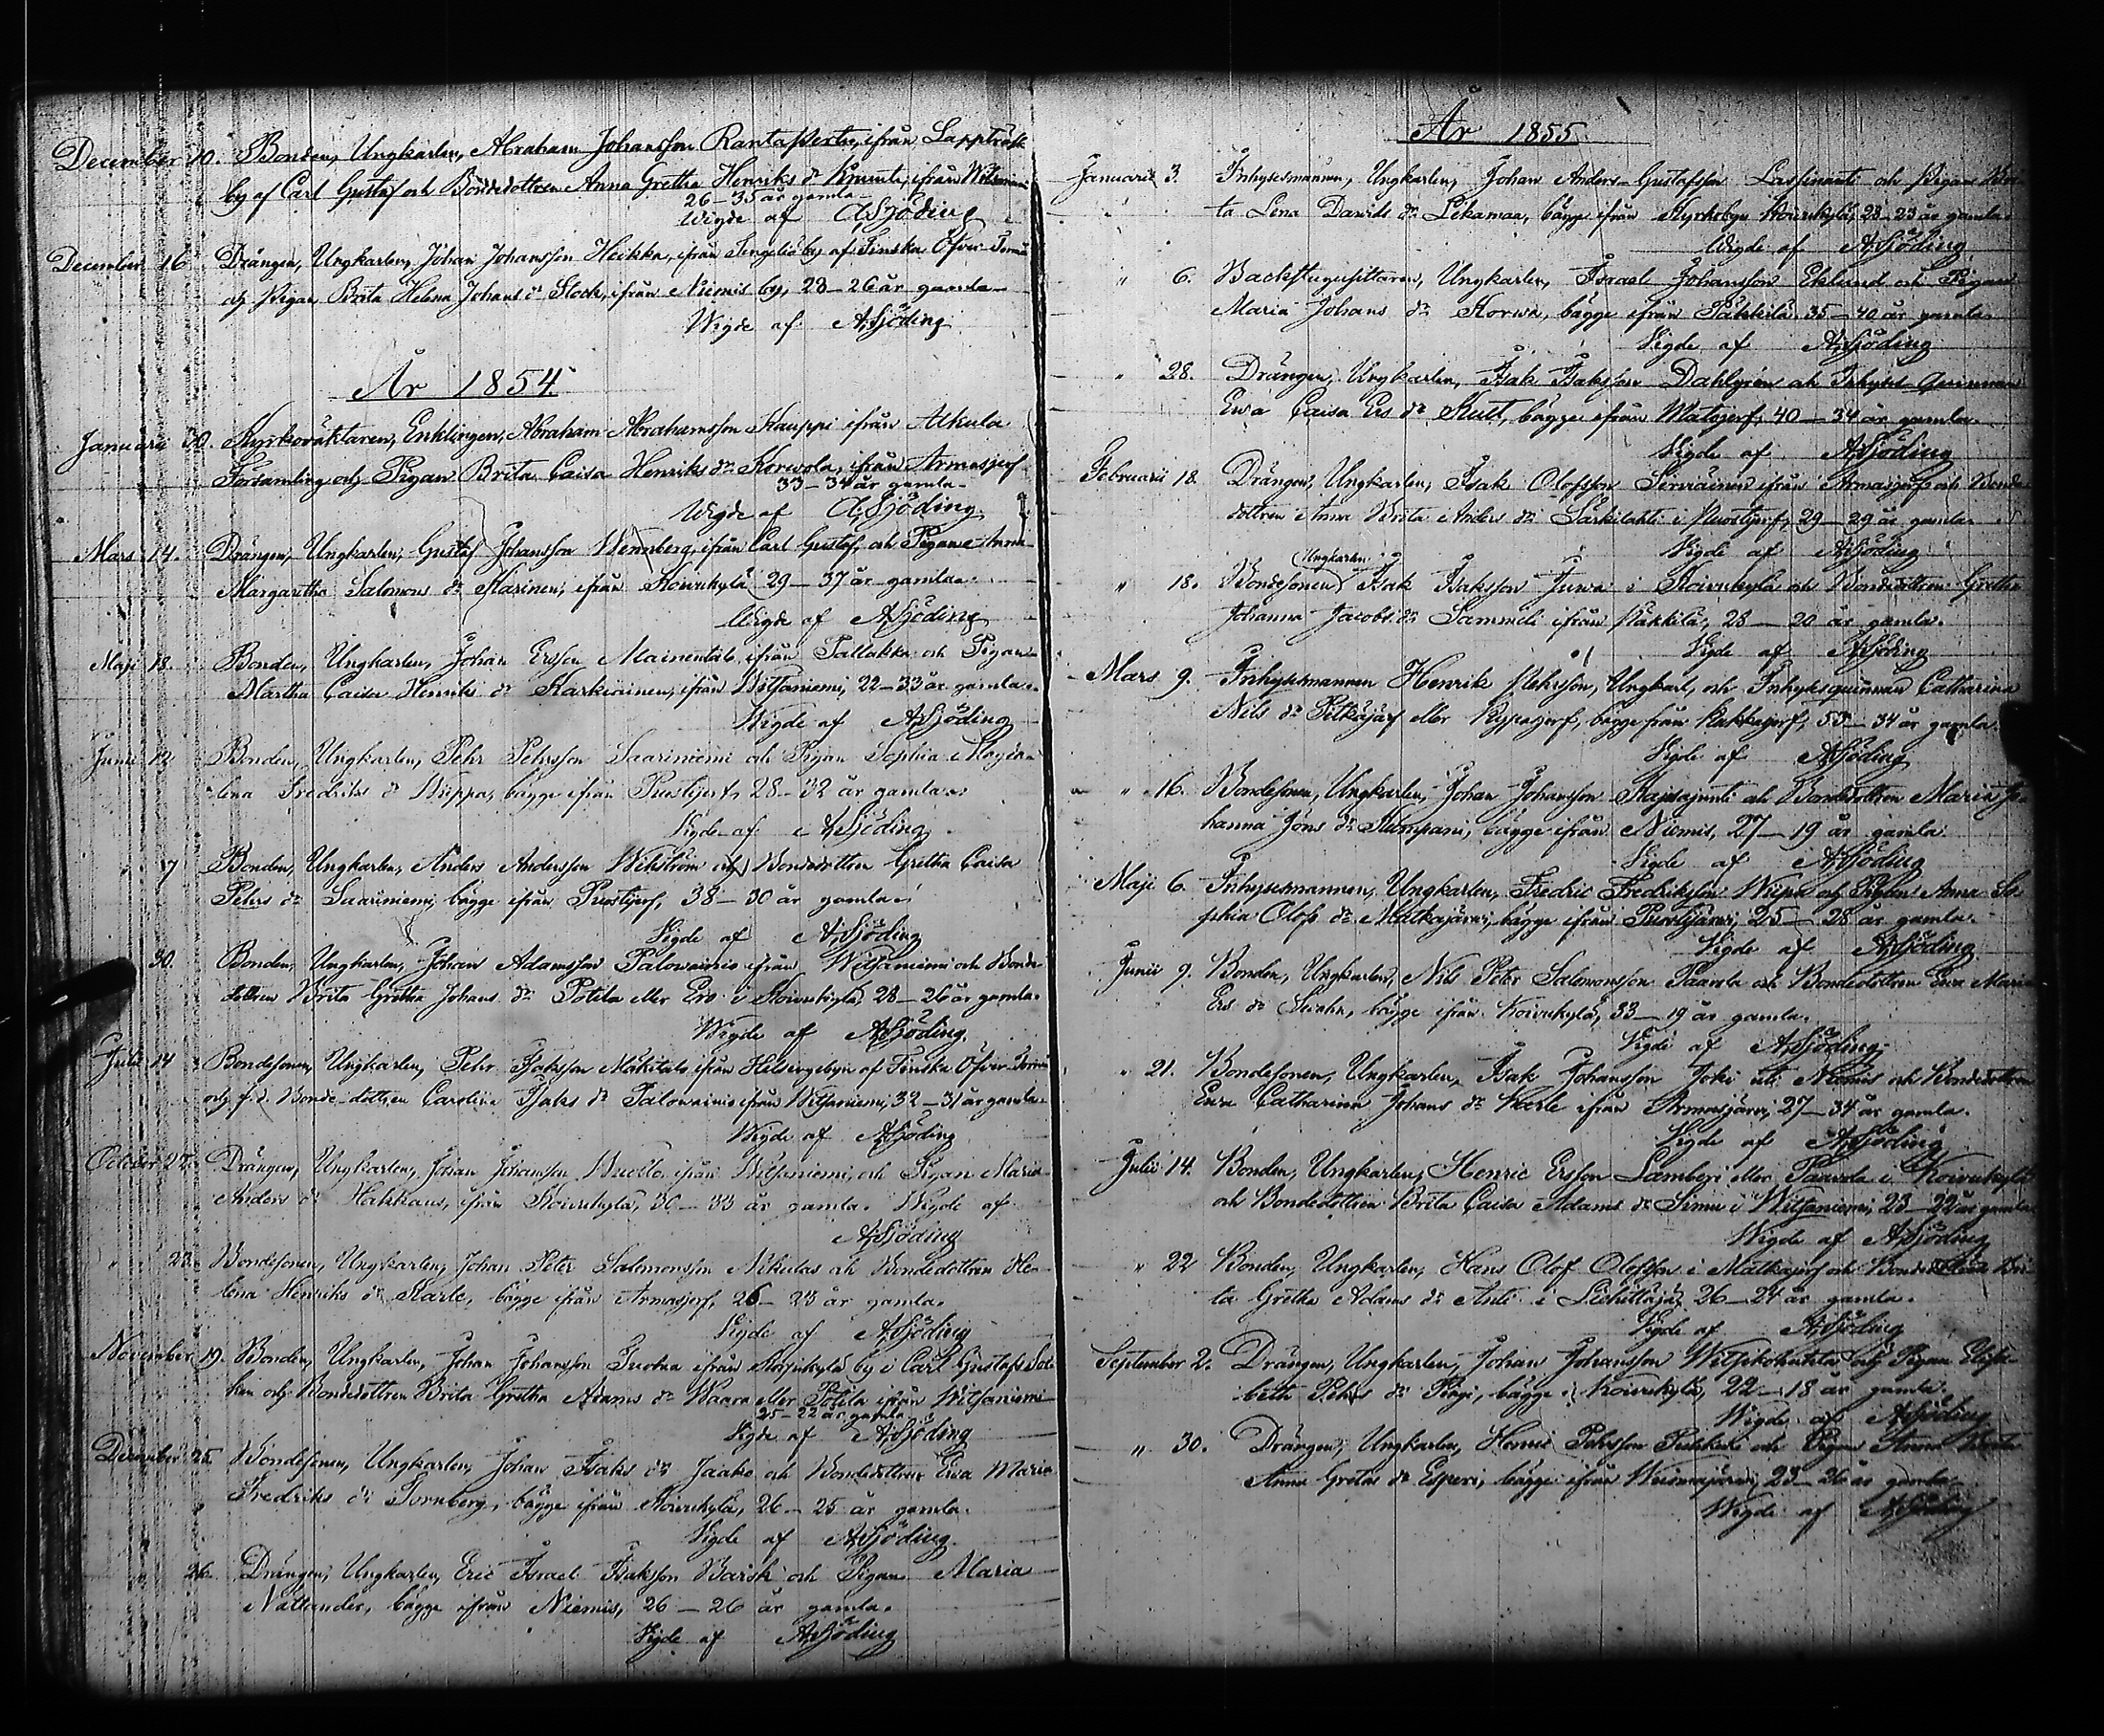 December 10. Bonden, Ungkarlen, Abraham Johansson Rantapertu, ifrån Lappträsk
by af Carl Gustaf och Bondedottren Anna Gretha Henriks dr ifrån
26 – 35 år gamla
Wigde af A. Sjöding
December 16 Drängen, Ungkarlen, Johan Johansson Heikka, ifrån Tengeliö by af Finska Öfver-Torneå
och Pigan Brita Helena Johans dr Stock, ifrån Niemis by, 28 – 26 år gamla
Wigde af A. Sjöding
År 1854.
Januarii 30. Kyrkoväktaren, Enklingen, Abraham Abrahamsson Kauppi ifrån Alkula
Församling och Pigan Brita Caisa Henriks dr Korwola, ifrån Armasjerf
33 – 34 år gamla
Wigde af A. Sjöding
Mars 14. Drängen, Ungkarlen, Gustaf Johansson Wennberg, ifrån Carl Gustaf, och Pigan Anna
Margaretha Salomons dr Karinen, ifrån Koivukylä 29 – 37 år gamla
Wigde af A. Sjöding
Maji 18. Bonden, Ungkarlen, Johan Ersson ifrån och Pigan
Martha Caisa Henriks dr Karkiainen, ifrån Witsaniemi, 22 – 33 år gamla.
Wigde af A. Sjöding
Junii 12 Bonden, Ungkarlen, Pehr Pehrsson Saariniemi och Pigan Sophia Magda-
lena Fredriks dr bägge ifrån Puostijerf, 28 – 32 år gamla.
Vigde af A. Sjöding
17 Bonden, Ungkarlen, Anders Andersson Wikström och Bondedottren Gretha Caisa
Pehrs dr Saariniemi, bägge ifrån Puostijerf, 38 – 30 år gamla.
Vigde af A. Sjöding
30. Bonden, Ungkarlen, Johan Adamsson Palowainio ifrån Witsaniemi och Bonde
dottren Brita Gretha Johans dr Potila eller Ero i Koivukylä, 28 – 26 år gamla.
Wigde af A. Sjöding.
Julii 14 Bondesonen, Ungkarlen, Pehr Isaksson Mäkitalo ifrån Helsingebyn af Finska Öfver-Torneå
och f. d. Bonde-dottren Carolina Isaks dr Palowainio ifrån Witsaniemi, 32 – 31 år gamla.
Wigde af A. Sjöding
October 22. Drängen, Ungkarlen, Johan Johansson ifrån Witsaniemi och Pigan Maria
Anders dr Hakkaus, ifrån Koivukylä, 30 – 33 år gamla. Wigde af
A. Sjöding
" 23. Bondesonen, Ungkarlen, Johan Peter Salomonsson Nikulas och Bondedottren He-
lena Henriks dr Karle, bägge ifrån Armasjerf, 26 – 23 år gamla.
Vigde af A. Sjöding
November 19. Bonden, Ungkarlen, Johan Johansson ifrån by i Carl Gustafs Soc-
ken och Bondedottren Brita Gretha Adams dr Waara eller Potila ifrån Witsaniemi
25 – 22 år gamla.
Vigde af A. Sjöding
December 25 Bondesonen, Ungkarlen, Johan Isaks dr Jaako och Bondedottren Ewa Maria
Fredriks dr Tornberg, bägge ifrån Koivukylä, 26 – 25 år gamla.
Vigde af A. Sjöding.
26. Drängen, Ungkarlen, Eric Israel Isaksson Barsk och Pigan Maria
Nättander, bägge ifrån Niemis, 26 – 26 år gamla.
Vigde af A. Sjöding
År 1855.
Januarii 3. Inhysesmannen, Ungkarlen, Johan Anders Gustafsson Lassinanti och Pigan Bri-
ta Lena Davids dr Lekamaa, bägge ifrån Kyrkobyn Koivukylä, 28 – 23 år gamla.
Wigde af A. Sjöding
" 6. Backstugusittaren, Ungkarlen, Israel Johansson Eklund och Pigan
Maria Johans dr Korwa, bägge ifrån Päkkilä, 35 – 40 år gamla.
Vigde af A. Sjöding
" 28. Drängen, Ungkarlen, Isak Isaksson Dahlgren och Inhyses Qvinnan
Ewa Caisa Ers dr Skutt, bägge ifrån Matojerf, 40 – 34 år gamla.
Vigde af A. Sjöding
Februarii 18. Drängen, Ungkarlen, Isak Olofsson Serviäinen ifrån Armasjerf och Bonde
dottren Anna Brita Anders dr Särkilahti i Puostijerf, 29 – 29 år gamla.
Vigde af A. Sjöding
" 18. Bondesonen, Ungkarlen Isak Isaksson Juwa i Koivukylä och Bondedottren Gretha
Johanna Jacobs dr Sammeli ifrån Päkkilä, 28 – 20 år gamla.
Vigde af A. Sjöding
Mars 9. Inhysesmannen Henrik Pehrsson, Ungkarl, och Inhysesquinnan Catharina
Nils dr Pitkäjärf eller bägge från 53 – 34 år gamla.
Vigde af A. Sjöding
" 16. Bondesonen, Ungkarlen, Johan Johansson Kajsajunti och Bondedottren Maria Jo-
hanna Jöns dr Kumpani, bägge ifrån Niemis, 27 – 19 år gamla.
Vigde af A. Sjöding
Maji 6. Inhysesmannen, Ungkarlen, Fredric Fredriksson Wiipa och Pigan Anna So-
phia Olofs dr Matkajärvi, bägge ifrån Puostijärvi, 25 – 28 år gamla.
Vigde af A. Sjöding
Junii 9. Bonden, Ungkarlen, Nils Peter Salomonsson Paavola och Bondedottren Ewa Maria
Ers dr bägge ifrån Koivukylä, 33 – 19 år gamla.
Vigde af A. Sjöding
" 21. Bondesonen, Ungkarlen, Isak Johansson Joki uti Niemis och Bondedottren
Ewa Catharina Johans dr Karle ifrån Armasjärvi, 27 – 34 år gamla.
Vigde af A. Sjöding
Julii 14. Bonden, Ungkarlen, Henric Ersson Lamberg eller Paavola i Koivukylä
och Bondedottren Brita Caisa Adams dr Simu i Witsaniemi, 23 – 22 år gamla
Wigde af A. Sjöding
" 22 Bonden, Ungkarlen, Hans Olof Olofsson i Matkajerf och Bondedottren Bri-
ta Gretha Adams dr Anti i 26 – 24 år gamla.
Vigde af A. Sjöding
September 2. Drängen, Ungkarlen, Johan Johansson och Pigan Elisa-
beth Pehrs dr bägge i Koivukylä, 22 – 18 år gamla.
Wigde af A. Sjöding
" 30. Drängen, Ungkarlen, Henric Pehrsson och Pigan
Anna Gretas dr Esperi, bägge ifrån 23 – 26 år gamla
Wigde af A. Sjöding